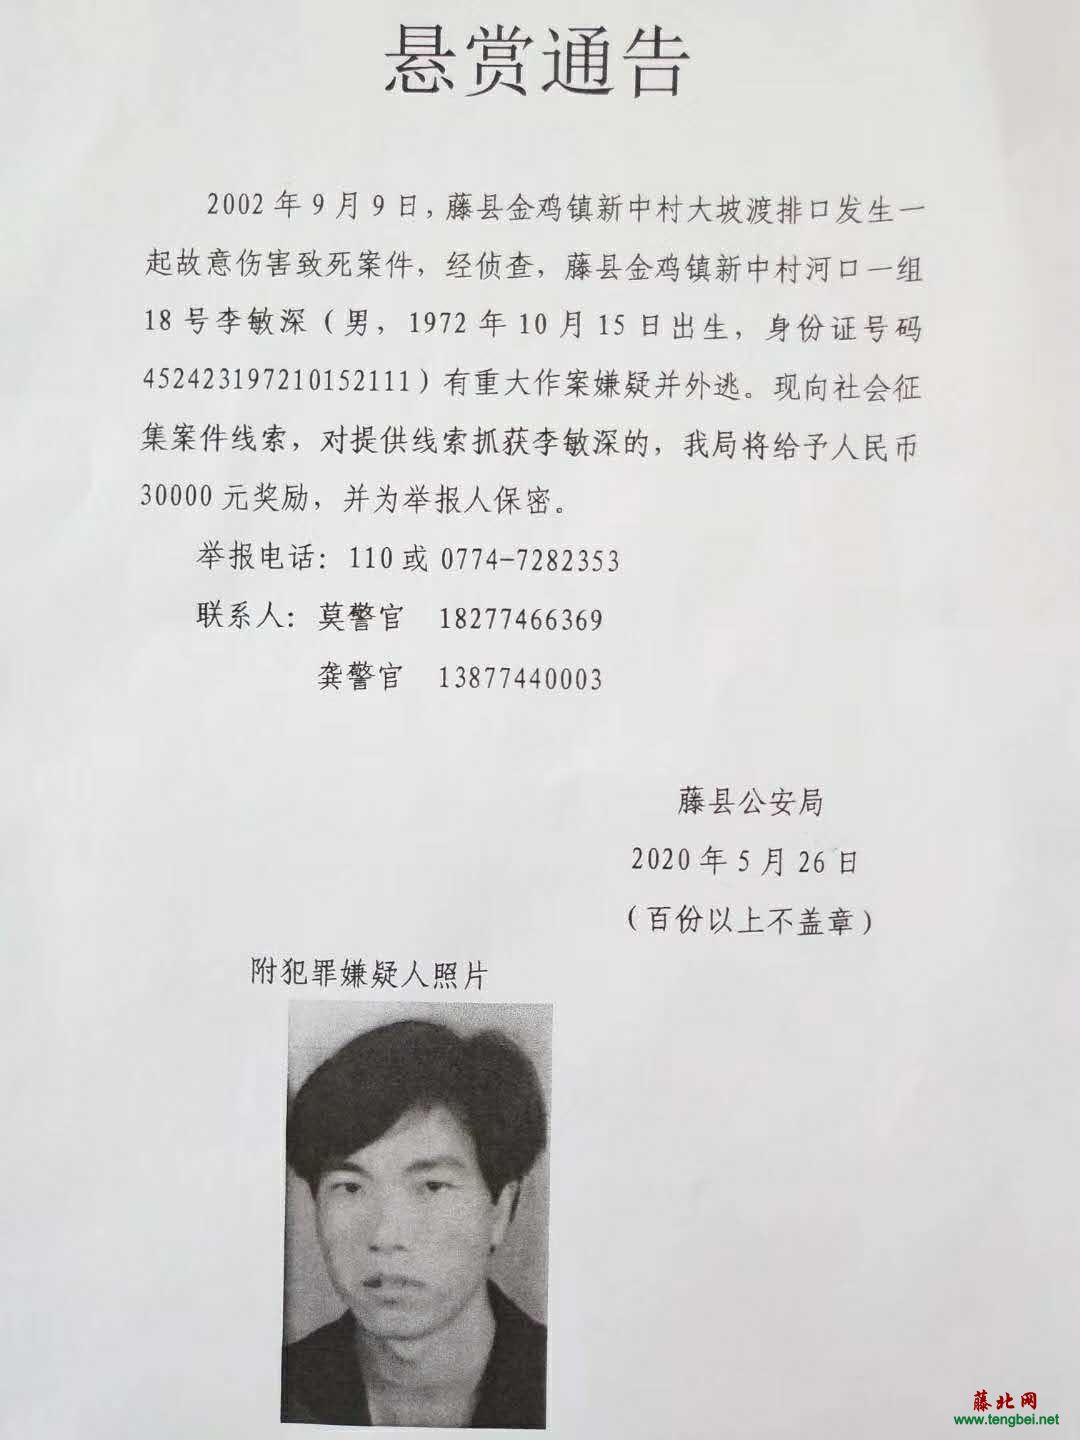 悬赏通告
2002年9月9日，藤县金鸡镇新中村大坡渡排口发生一
起故意伤害致死案件，经侦查，藤县金鸡镇新中村河口一组
18号李敏深（男，1972年10月15日出生，身份证号码
452423197210152111）有重大作案嫌疑并外逃。现向社会征
集案件线索，对提供线索抓获李敏深的，我局将给予人民币
30000元奖励，并为举报人保密。
举报电话：110或0774-7282353
联系人：莫警官 18277466369
龚警官 13877440003
藤县公安局
2020年5月26日
（百份以上不盖章）
附犯罪嫌疑人照片
藤北网
www.tengbei.net